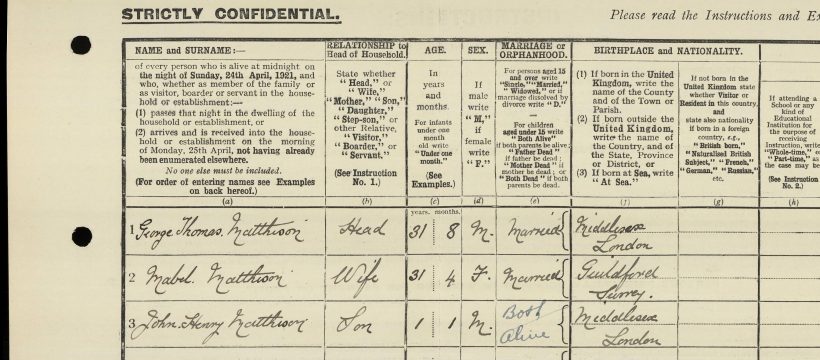 STRICTLY CONFIDENTIAL.
Please read the Instructions and
NAME and SURNAME:—
of every person who is alive at midnight on
the night of Sunday, 24th April, 1921, and
who, whether as member of the family or
as visitor, boarder or servant in the house-
hold or establishment:—
(1) passes that night in the dwelling of the
household or establishment, or
(2) arrives and is received into the house-
hold or establishment on the morning
of Monday, 25th April, not having already
been enumerated elsewhere.
No one else must be included.
(For order of entering names see Examples
on back hereof.)
(a)
RELATIONSHIP to
Head of Household.
State whether
"Head," or
"Wife,"
"Mother," "Son,"
"Daughter,"
"Step-son," or
other Relative,
"Visitor,"
"Boarder," or
"Servant."
(See Instruction
No. 1.)
(b)
AGE.
In
years
and
months.
For infants
under one
month
old write
"Under one
month."
(See
Examples.)
(c)
SEX.
If
male
write
"M,"
if
female
write
"F."
(d)
MARRIAGE or
ORPHANHOOD.
For persons aged 15
and over write
"Single," "Married,"
"Widowed," or if
marriage dissolved by
divorce write "D."
For children
aged under 15 write
"Both Alive"
if both parents be alive;
"Father Dead"
if father be dead;
"Mother Dead" if
mother be dead; or
"Both Dead" if both
parents be dead.
(e)
BIRTHPLACE and NATIONALITY.
(1) If born in the United
Kingdom, write the
name of the County
and of the Town or
Parish.
(2) If born outside the
United Kingdom,
write the name of
the Country, and of
the State, Province
or District, or
(3) If born at Sea, write
"At Sea."
(f)
If not born in the
United Kingdom state
whether Visitor or
Resident in this country,
and
state also nationality
if born in a foreign
country, e.g.,
"British born,"
"Naturalised British
Subject," "French,"
"German," "Russian,"
etc.
(g)
If attending a
School or any
kind of
Educational
Institution for
the purpose of
receiving
Instruction, write
"Whole-time," or
"Part-time," as
the case may be
(See Instruction
No. 2.)
(h)
years. months.
1 George Thomas. Matthison Head 31 8 M. Married Middlesex
London
2 Mabel. Matthison Wife 31 4 F. Married Guildford
Surrey.
3 John. Henry Matthison Son 1 1 M. Both Alive Middlesex
London